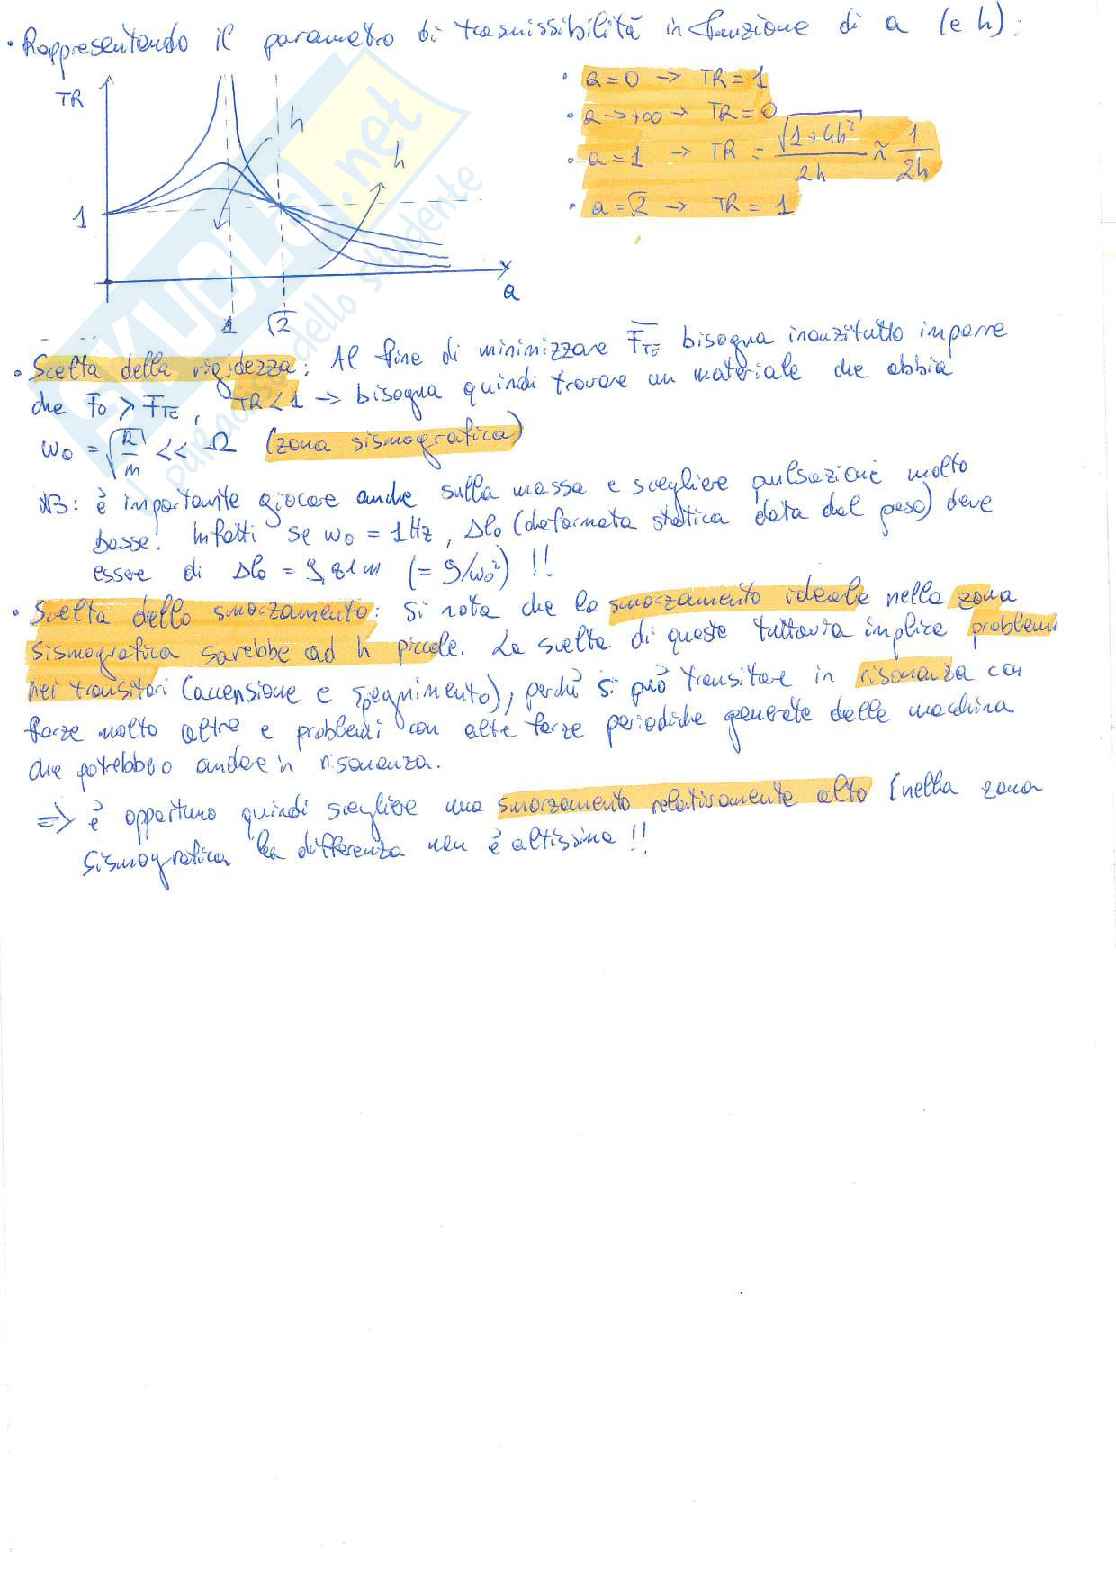 · Rappresentando il parametro di trasmissibilità in funzione di a (e h):
TR
1
h
h
1
√2
a
· a=0 → TR=1
· a→+∞ → TR=0
· a=1 → TR = √(1+4h²)/2h ≈ 1/2h
· a=√2 → TR=1
SKUOLA.net
paradiso dello studente
· Scelta della rigidezza: Al fine di minimizzare F_TE bisogna innanzitutto imporre
che F0 > F_TE, TR<1 → bisogna quindi trovare un materiale che abbia
ω0 = √(k/m) << Ω (zona sismografica)
NB: è importante giocare anche sulla massa e scegliere pulsazioni molto
basse. Infatti se ω0 = 1Hz, Δl0 (deformata statica data dal peso) deve
essere di Δl0 = 9,81m (= g/ω0²) !!
· Scelta dello smorzamento: Si nota che lo smorzamento ideale nella zona
sismografica sarebbe ad h piccole. La scelta di queste tuttavia implica problemi
nei transitori (accensione e spegnimento), perché si può transitare in risonanza con
forze molto altre e problemi con altre forze periodiche generate dalla macchina
che potrebbero andare in risonanza.
=> è opportuno quindi scegliere uno smorzamento relativamente alto (nella zona
sismografica la differenza non è altissima !!